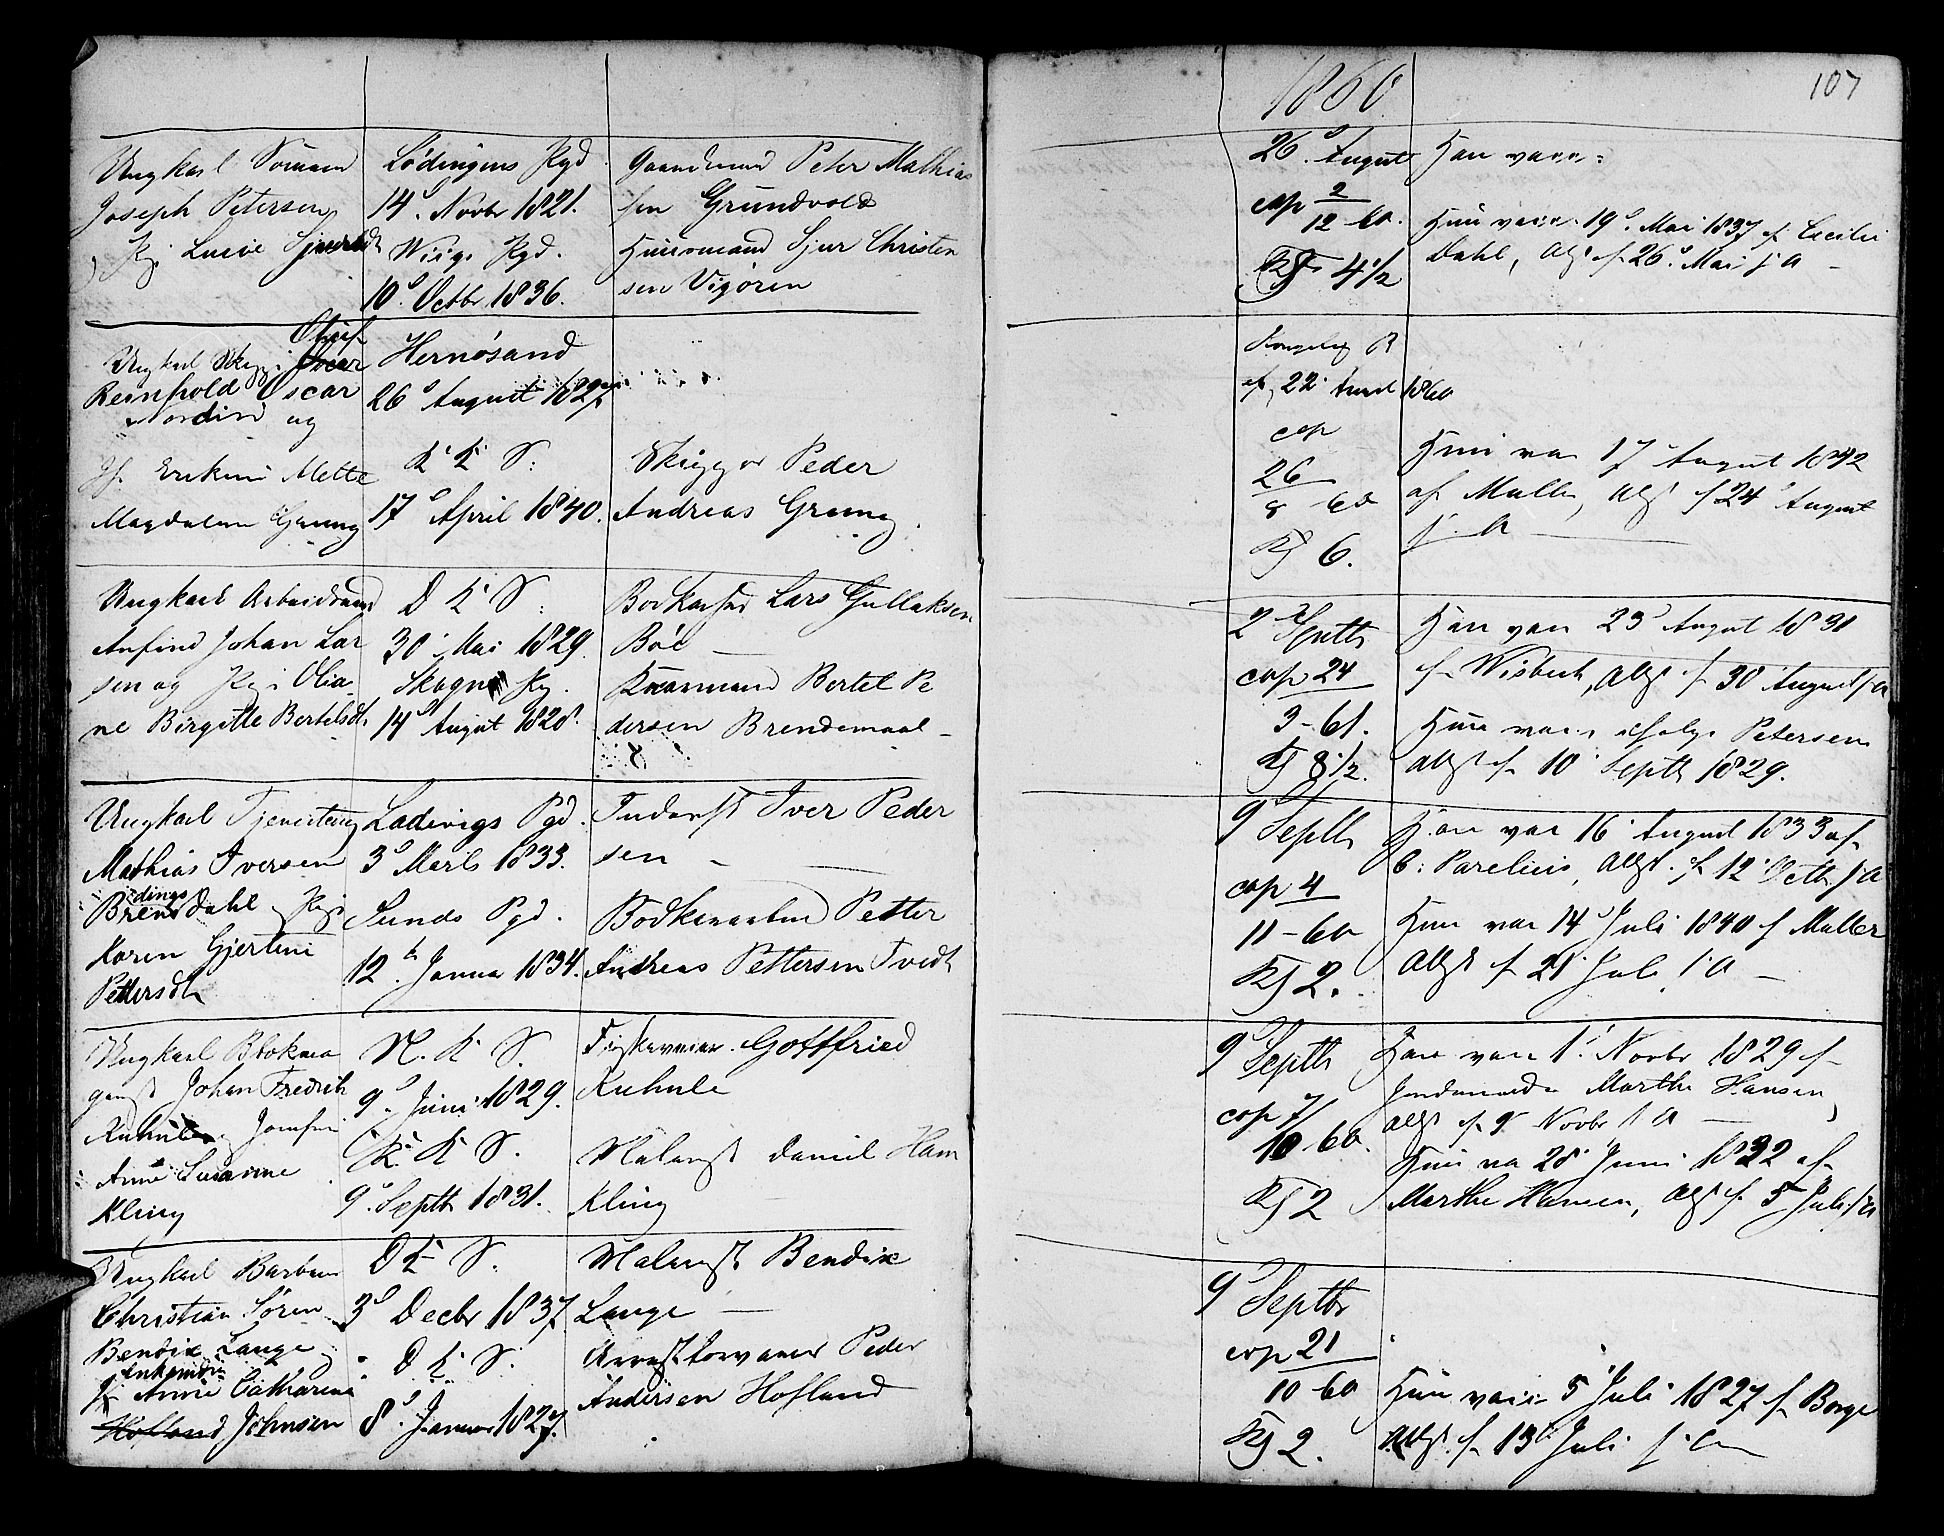 1860
107
Ungkarl Sömand
Joseph Petersen
Pg. Lucie Sjursdt
Lödingens Pgd
14d. Novbr 1821.
Wiigs Pgd.
10d. Octbr 1836.
Gaardmand Peter Mathias
sen Grundvold
Huusmand Sjur Christen
sen Vigören
26d. August
cop 2/12 60.
Kf 4 1/2
Han vacc:
Hun vacc. 19d. Mai 1837 af Cecilie
Dahl, Attst af 26d. Mai s A
Oluf
Ungkarl Skipp
Reinhold Oscar
Nordin og
Jf. Erikine Mette
Magdalene Grung
Hernösand
26d August 1827
K K S:
17d April 1840.
Skipper Peder
Andreas Grung.
Kongelig B
af 22 1860
cop
26/8 60
Kf 6.
Hun vac 17 August 1842
af Maller, Attst af 24d August
s. A
Ungkarl Arbeidsmand
Anfind Johan Lar
sen og Pige Olia
ne Birgitte Bertelsdt.
D K S:
30 Mai 1829.
Skogn Pg.
14d August 1828.
Bödkersvd Lars Gullaksen
Böe
Kaarmand Bertel Pe
dersen Brendemoal
2d Septb
cop 24
3-61.
Kf 8 1/2.
Han vac 23d August 1831
af Wisbech, Attst af 30 August s A
Hun vacc ifølge Petersen
Attst af 10 Septb 1829.
Ungkarl Tjenesteng
Mathias Iversen
Brendsdahl og Pige
Karen Gjertine
Pettersdt
Ladevigs Pgd.
3d Marts 1833.
Sunds Pgd.
12te Januar 1834.
Inderst Iver Peder
sen
Bödkerarbeid Petter
Andreas Pettersen Tvedt
9d Septb
cop 4
11-60
Kf 2.
Han vac 16 August 1833 af
C: Parelius, Attst. af 12 Octb s A
Hun vac 14d Juli 1840 af Maller
Attst af 21 Juli s A
Ungkarl Blokma
gerst Johan Fredrik
Kuhnle og Jomfru
Anne Susanne
Kling
N. K S.
9d. Juni 1829.
K. K S.
9d. Septb 1831.
Fiskevraker Gottfried
Kuhnle
Malerst Daniel Ham
Kling
9d Septb
cop 7/
10 60.
Kf 2
Han vacc 1d. Novbr 1829 af
Jordemoder Marthe Hansen,
Attst af 9d Novbr s A
Hun va 28d Juni 1832 af
Marthe Hansen, Attst af 5 Juli s A
Ungkarl Barber
Christian Sören
Bendix Lange og
Pi Anne Catharine
Hofland Johnsen
D K S.
3d Decbr 1837.
D K S.
8d. Januar 1827.
Malerst Bendix
Lange
Arrestforvarer Peder
Andersen Hofland
9d Septbr
cop 21
10 60
Kf 2.
Hun vacc 5d Juli 1827 af Borge
Attst af 13d Juli s A